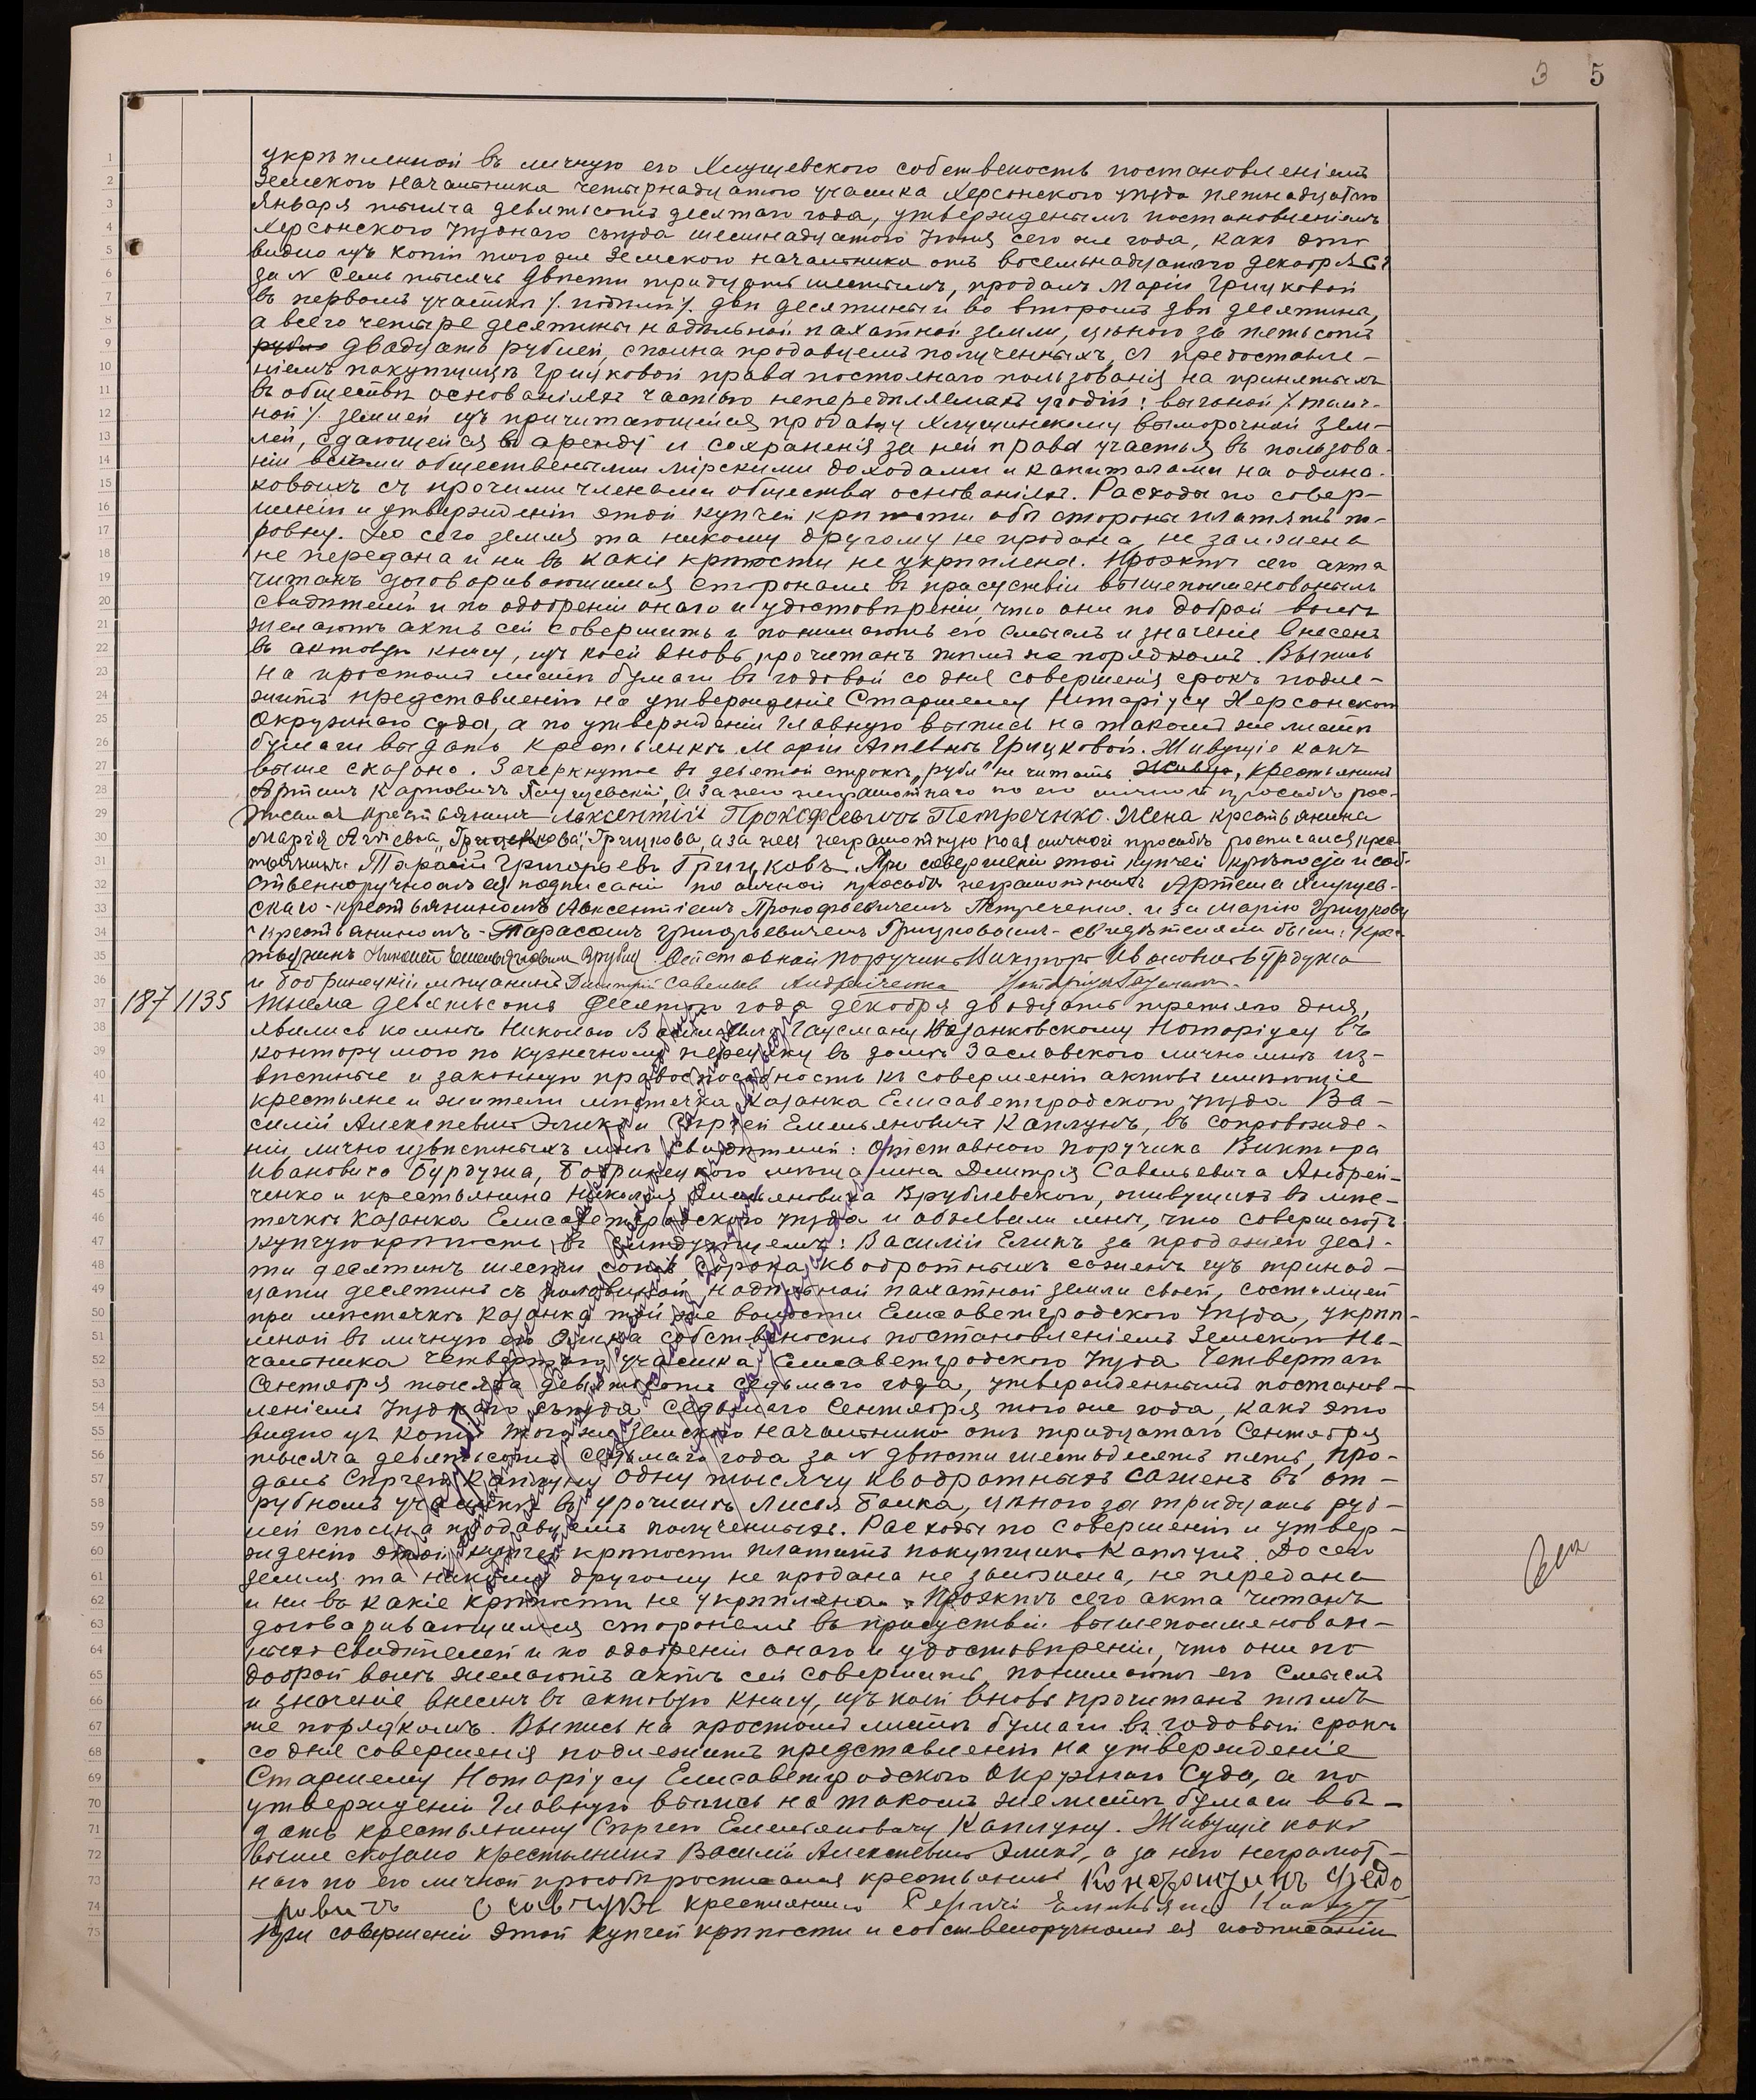 3 5
укрѣпленной въ личную его Хмущевского собственость постановленіемъ
Земского Начальника четырнадцатого участка Херсонского уѣзда пятнадцатого
января тысяча девятьсотъ десятаго года, утвержденымъ постановленіемъ
Херсонского уѣзднаго съѣзда шестнадцатого Іюня сего же года, какъ это
видно изъ копіи того же Земского начальника отъ восемьнадцатого декабря с/г
за N семь тысячъ двѣсти тридцать шестымъ, продалъ Маріи Грицковой
въ первомъ участкѣ /. подъ /. двѣ десятины и во второмъ двѣ десятины,
а всего четыре десятины надѣльной пахатной земли, цѣною за пятьсотъ
рубле двадцать рублей, сполна продавцемъ полученныхъ, съ предоставле-
ніемъ покупщицѣ Грицковой права постоянаго пользованія на принятыхъ
въ обществѣ основаніяхъ частью непередѣляемыхъ угодій: выгоной /.
ной /. землей изъ причитающейся продавцу выморочной зем-
лей, сдающейся въ аренду и сохраненія за ней права участья въ пользова-
ніи всѣми общественными мірскими доходами и капиталами на одина-
ковыхъ съ прочими членами общества основаніяхъ. Расходы по совер-
шенію и утвержденію этой купчей крѣпости обѣ стороны платятъ по-
ровну. До сего земля та никому другому не продана, не заложена
не передана и ни въ какіе крѣпости не укрѣплена. Проэктъ сего акта
читанъ договаривающимся сторонамъ въ прасуствіи вышепоименованымъ
свидѣтелей и по одобреніи онаго и удостовѣреніи, что они по доброй волѣ
желаютъ актъ сей совершить и понимаютъ его смыслъ и значеніе внесенъ
въ актовую книгу, изъ коей вновь прочитанъ тѣмъ же порядкомъ. Выпись
на простомъ листѣ бумаги въ годовой со дня совершенія срокъ подле-
житъ представленію на утвержденіе Старшему Нотаріусу Херсонского
Окружнаго суда, а по утвержденіи главную выпись на такомъ же листѣ
бумаги выдать крестьянкѣ Маріи Агѣевнѣ Грицковой. Живущіе какъ
выше сказано. Зачеркнутое въ девятой строкѣ „рубл" не читать. Живущ, крестьянинъ
Артемъ Карповичъ, а за него неграмотнаго по его личной просьбѣ рос-
писался крестьянинъ Авксентій Прокофьевичъ Петреченко. Жена крестьянина
Марія Агѣевна „Грицевкова", Грицкова, а за нея неграмотную по ея личной просьбѣ росписался крес-
тьянинъ Тарасій Григорьевъ Грицковъ. При совершеніи этой купчей крѣпости и соб-
ственноручномъ ея подписаніи по личной просьбѣ неграмотныхъ Артема Хмущев-
скаго - крестьяниномъ Авксентіемъ Прокофьевичемъ Петреченко. и за Марію Грицкову
крестьяниномъ - Тарасомъ Григорьевичемъ Грицковымъ - свидѣтелями были: Крес-
тьянинъ Николай Емельяновъ Отставной поручикъ Викторъ Ивановичъ Бурдужа
и бобринецкій мѣщанинъ Дмитрій Савельевъ Андрейченко Нотаріусъ Гаусманъ.
187 1135 Тысяча девятьсотъ десятаго года декабря двадцать третьяго дня,
явились ко мнѣ Николаю Васильевичу Гаусману Казанковскому Нотаріусу въ
контору мою по кузнечному переулку въ домѣ Заславского лично мнѣ из-
вѣстные и законную правоспособность къ совершенію актовъ имѣющіе
крестьяне и жители мѣстечка Казанка Елисаветградского уѣзда Ва-
силій Алексѣевичъ Эликъ и Сергей Емельяновичъ Каплунъ, въ сопровожде-
ніи лично извѣстныхъ мнѣ свидѣтелей: Отставного поручика Виктора
Ивановича Бурдужа, Бобринецкого мѣщанина Дмитрія Савельевича Андрей-
ченко и крестьянина Николая Емельяновича Врублевского, живущихъ въ мѣс-
течкѣ Казанка Елисаветградского уѣзда и обявили мнѣ, что совершаютъ
купчую крѣпость въ слѣдующемъ: Василій Еликъ за продажей деся-
ти десятинъ шести сотъ сорока квадратныхъ саженъ изъ тринад-
цати десятинъ съ половиной надѣльной пахатной земли своей, состоящей
при мѣстечкѣ Казанка той же волости Елисаветградского уѣзда, укрѣп-
леной въ личную его Элика собственость постановленіемъ Земского На-
чальника четвертаго участка Елисаветградского уѣзда Четвертаго
Сентября тысяча девятьсотъ седьмаго года, утвержденнымъ постанов-
леніемъ Уѣзднаго съѣзда седьмаго Сентября того же года, какъ это
видно изъ копіи того же Земского начальника отъ тридцатаго Сентября
тысяча девятьсотъ седьмаго года за N двѣсти шестьдесятъ пять, про-
далъ Сергею Каплуну одну тысячу квадратныхъ саженъ въ от-
рубномъ участкѣ въ урочищѣ Лисья Балка, цѣною за тридцать руб-
лей сполна продавцемъ полученныхъ. Расходы по совершенію и утвер-
жденію этой купчей крѣпости платитъ покупщикъ Каплунъ. До сего
земля та никому другому не продана не заложена, не передана
и ни въ какіе крѣпости не укрѣплена. Проэктъ сего акта читанъ
договаривающимся сторонамъ въ присуствіи вышепоименован-
ныхъ свидѣтелей и по одобреніи онаго и удостовѣреніи, что они по
доброй волѣ желаютъ актъ сей совершить, понимаютъ его смыслъ
и значеніе, внесенъ въ актовую книгу, изъ коей вновь прочитанъ тѣмъ
же порядкомъ. Выпись на простомъ листѣ бумаги въ годовой срокъ
со дня совершенія подлежитъ представленію на утвержденіе
Старшему Нотаріусу Елисаветградского Окружнаго Суда, а по
утвержденіи Главную выпись на такомъ же листѣ бумаги вы-
дать крестьянину Сергею Емельяновичу Каплуну. Живущіе какъ
выше сказано крестьянинъ Василій Алексѣевичъ Эликъ, а за него неграмот-
наго по его личной просьбѣ росписался крестьянинъ Федо
ровичъ крестьянинъ Сергей Емельяно Каплун
При совершеніи этой купчей крѣпости и собственоручномъ ея подписаніи